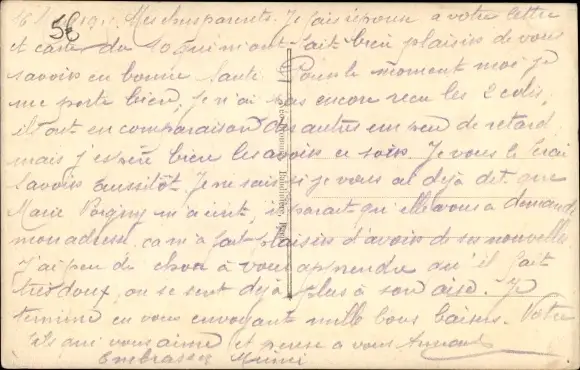 Mes chers parents. Je fais réponse a votre lettre
et carte du 10 qui m'ont fait bien plaisirs de vous
savoirs en bonne Santé. Pour le moment moi je
me porte bien, Je n'ai pas encore recu les 2 colis,
ils ont en comparaison des autres un peu de retard
mais j'espère bien les avoirs ce soirs. Je vous le ferai
Savoirs aussitôt. Je ne sais si je vous ai déjà dit que
Marie m'a écrit, il parait qu'elle vous a demandé
mon adresse. ca m'a fait plaisirs d'avoirs de ses nouvelles
J'ai peu de chose à vous apprendre qu'il fait
tres doux, on se sent déjà plus à son aise. Je
termine en vous envoyant mille bons baisers. Votre
fils qui vous aime et pense a vous Armand
Embrasser Mimi
5€